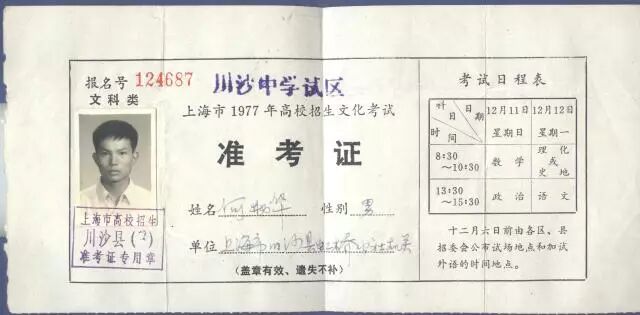 报名号 124687
文科类
川沙中学试区
上海市1977年高校招生文化考试
准考证
姓名 何 华 性别 男
单位 上海市川沙县
(盖章有效、遗失不补)
上海市高校招生
川沙县(3)
准考证专用章
考试日程表
科目 日期 时间 12月11日 星期日 12月12日 星期一
8:30～10:30 数学 理化或史地
13:30～15:30 政治 语文
十二月六日前由各区、县
招委会公布试场地点和加试
外语的时间地点。